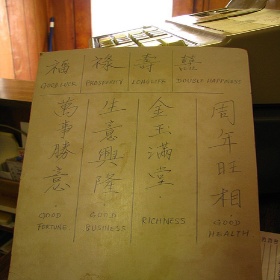 福 祿 壽 囍
GOOD LUCK PROSPERITY LONGEVITY DOUBLY HAPPINESS
萬事勝意
GOOD
FORTUNE
生意興隆
GOOD
BUSINESS
金玉滿堂
RICHNESS
周年旺相
GOOD
HEALTH